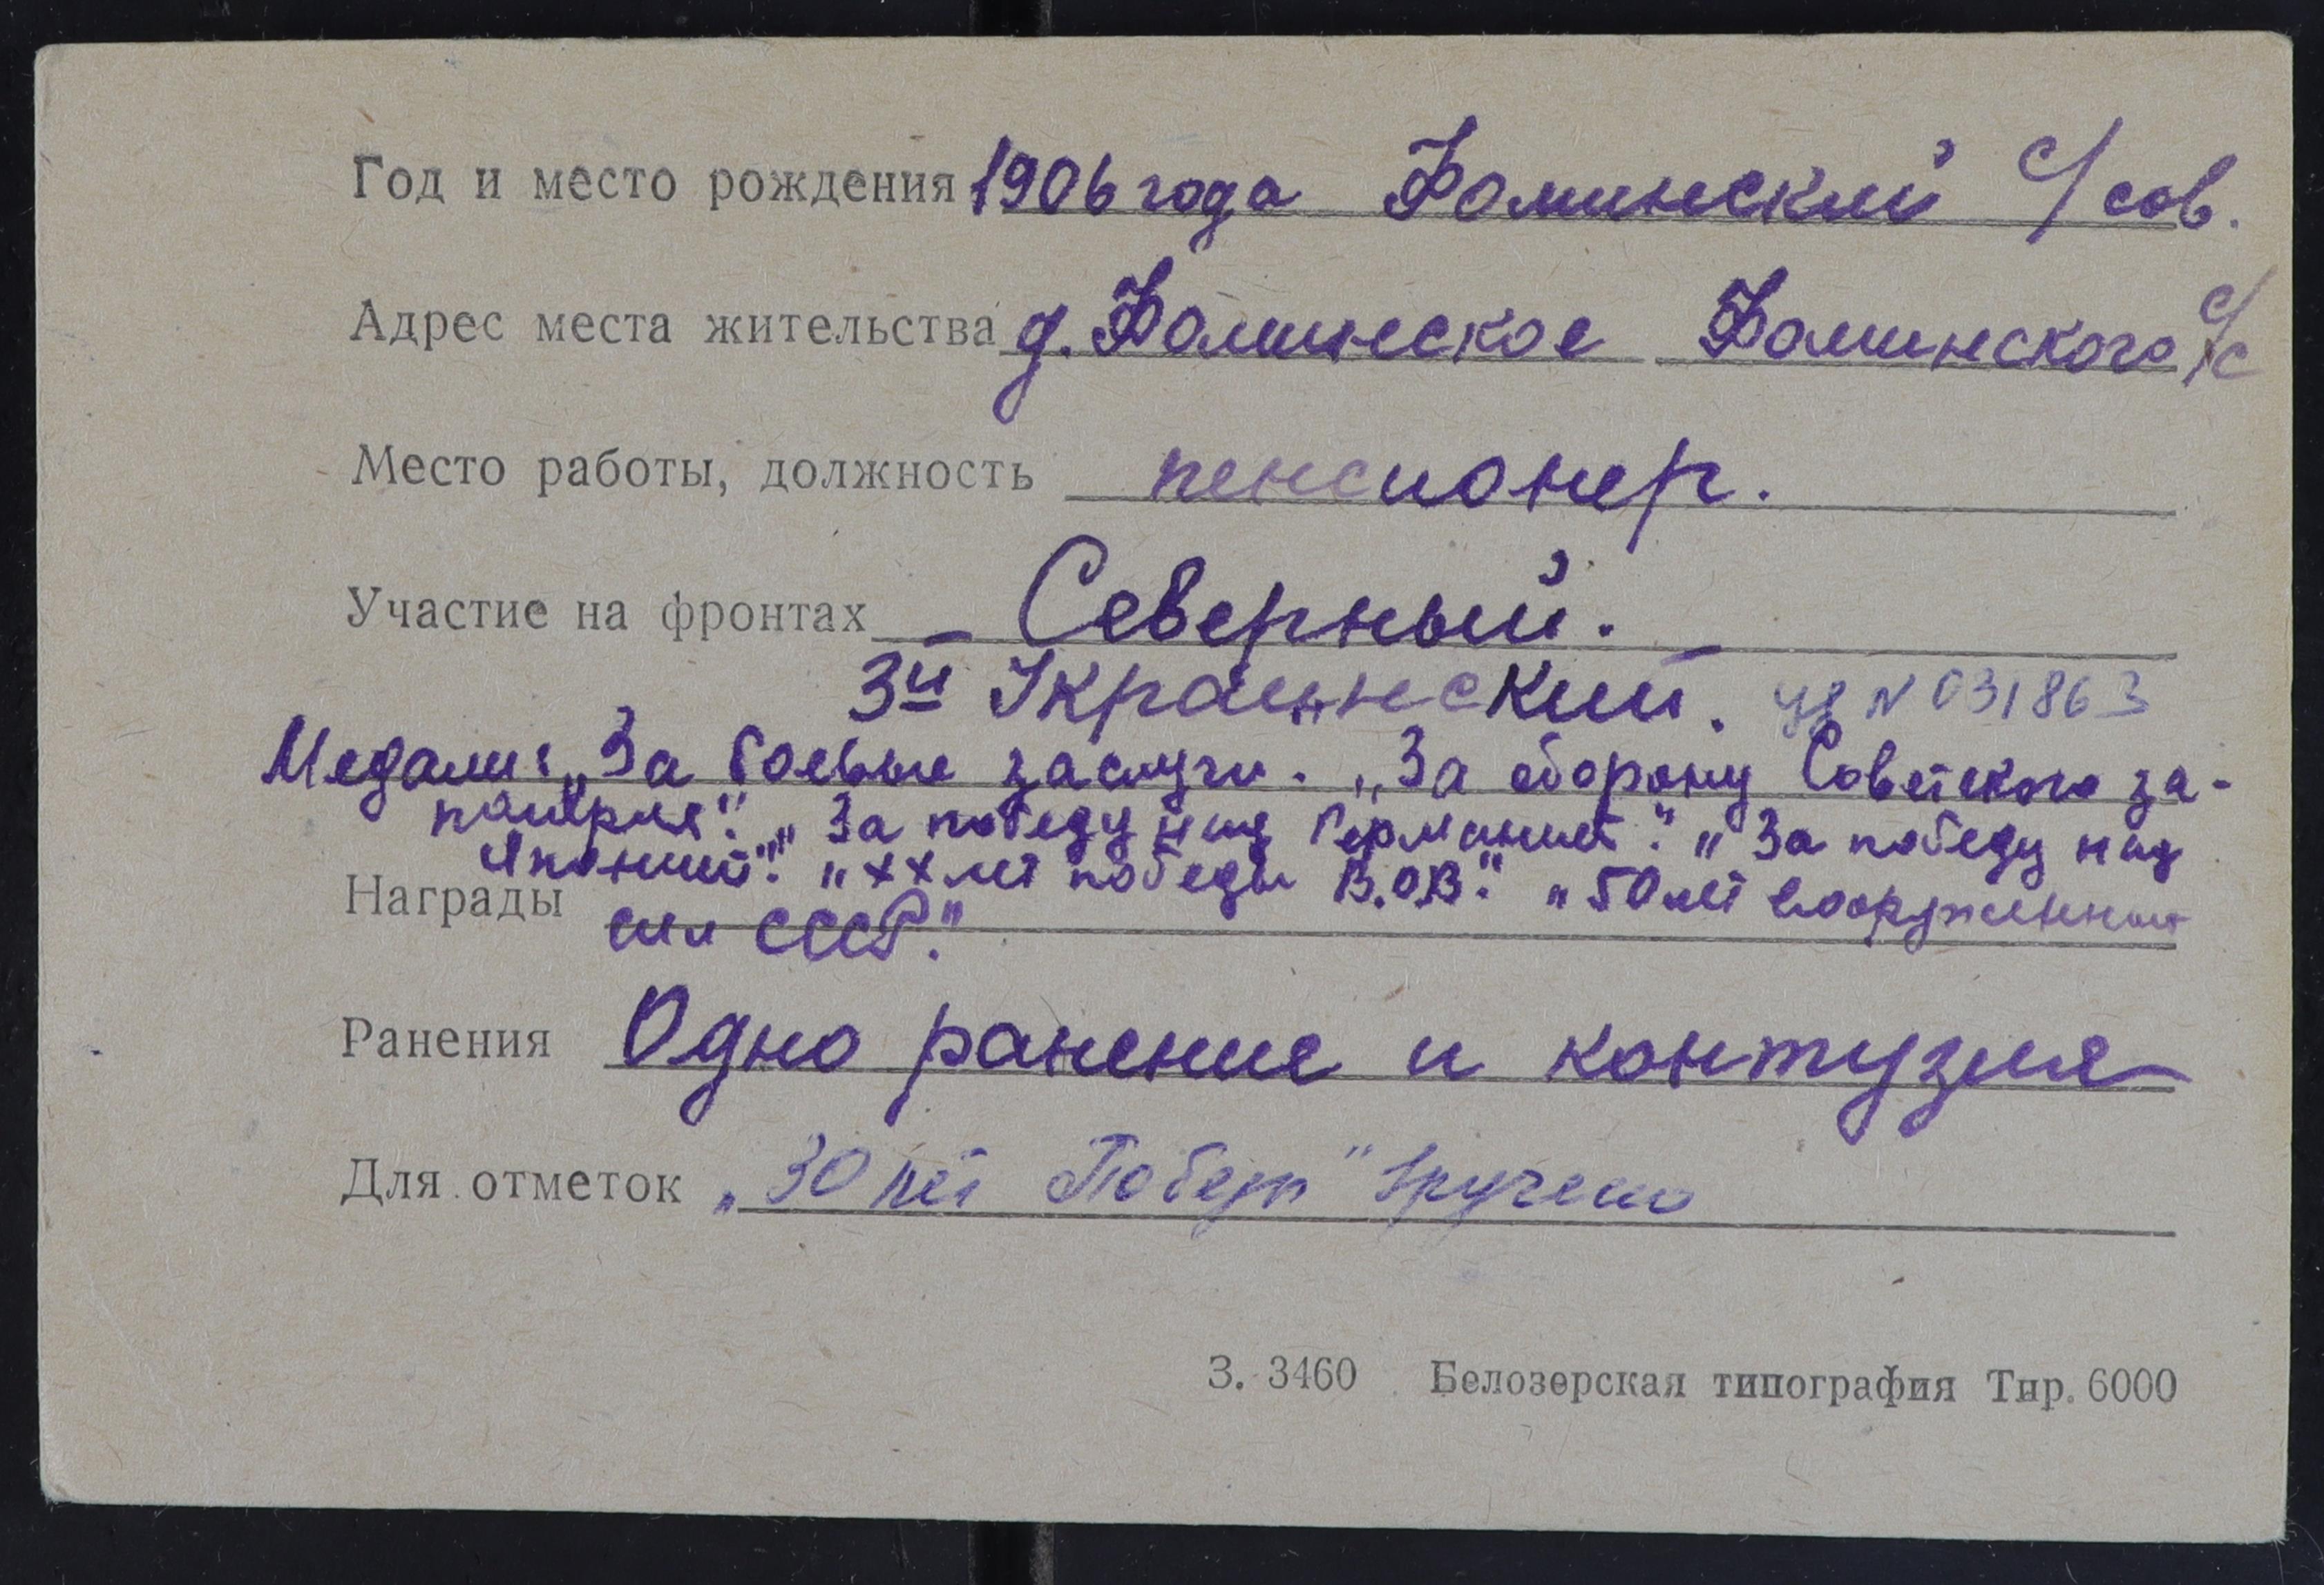 Год и место рождения 1906 года Фоминский с/сов.
Адрес места жительства д. Фоминское Фоминского с/с
Место работы, должность пенсионер.
Участие на фронтах Северный.
3й Украинский. уд N 031863
Медали: „За боевые заслуги. „За оборону Советского за-
полярья". „За победу над Германией". „За победу над
Японией". „ХХ лет победы В.О.В." „50 лет вооруженных
Награды сил СССР."
Ранения Одно ранение и контузия
Для отметок „30 лет Победы" вручено
З. 3460 Белозерская типография Тир. 6000